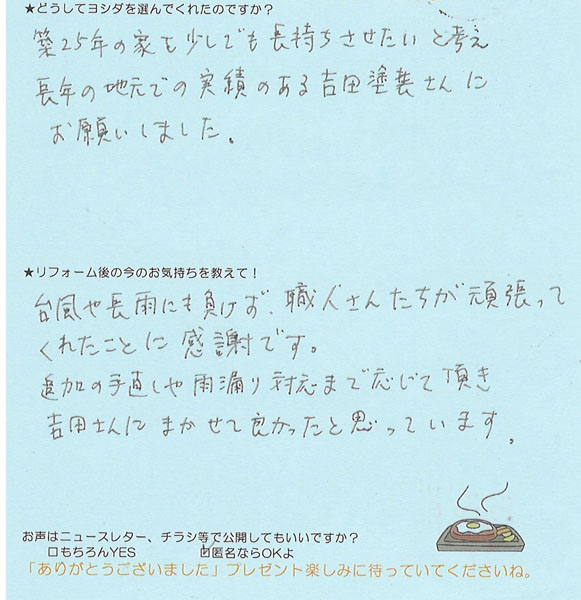 ★どうしてヨシダを選んでくれたのですか？
築25年の家を少しでも長持ちさせたいと考え
長年の地元での実績のある吉田塗装さんに
お願いしました。
★リフォーム後の今のお気持ちを教えて！
台風や長雨にも負けず、職人さんたちが頑張って
くれたことに感謝です。
追加の手直しや雨漏り対応まで応じて頂き
吉田さんにまかせて良かったと思っています。
お声はニュースレター、チラシ等で公開してもいいですか？
□もちろんYES ☑匿名ならOKよ
「ありがとうございました」プレゼント楽しみに待っていてくださいね。